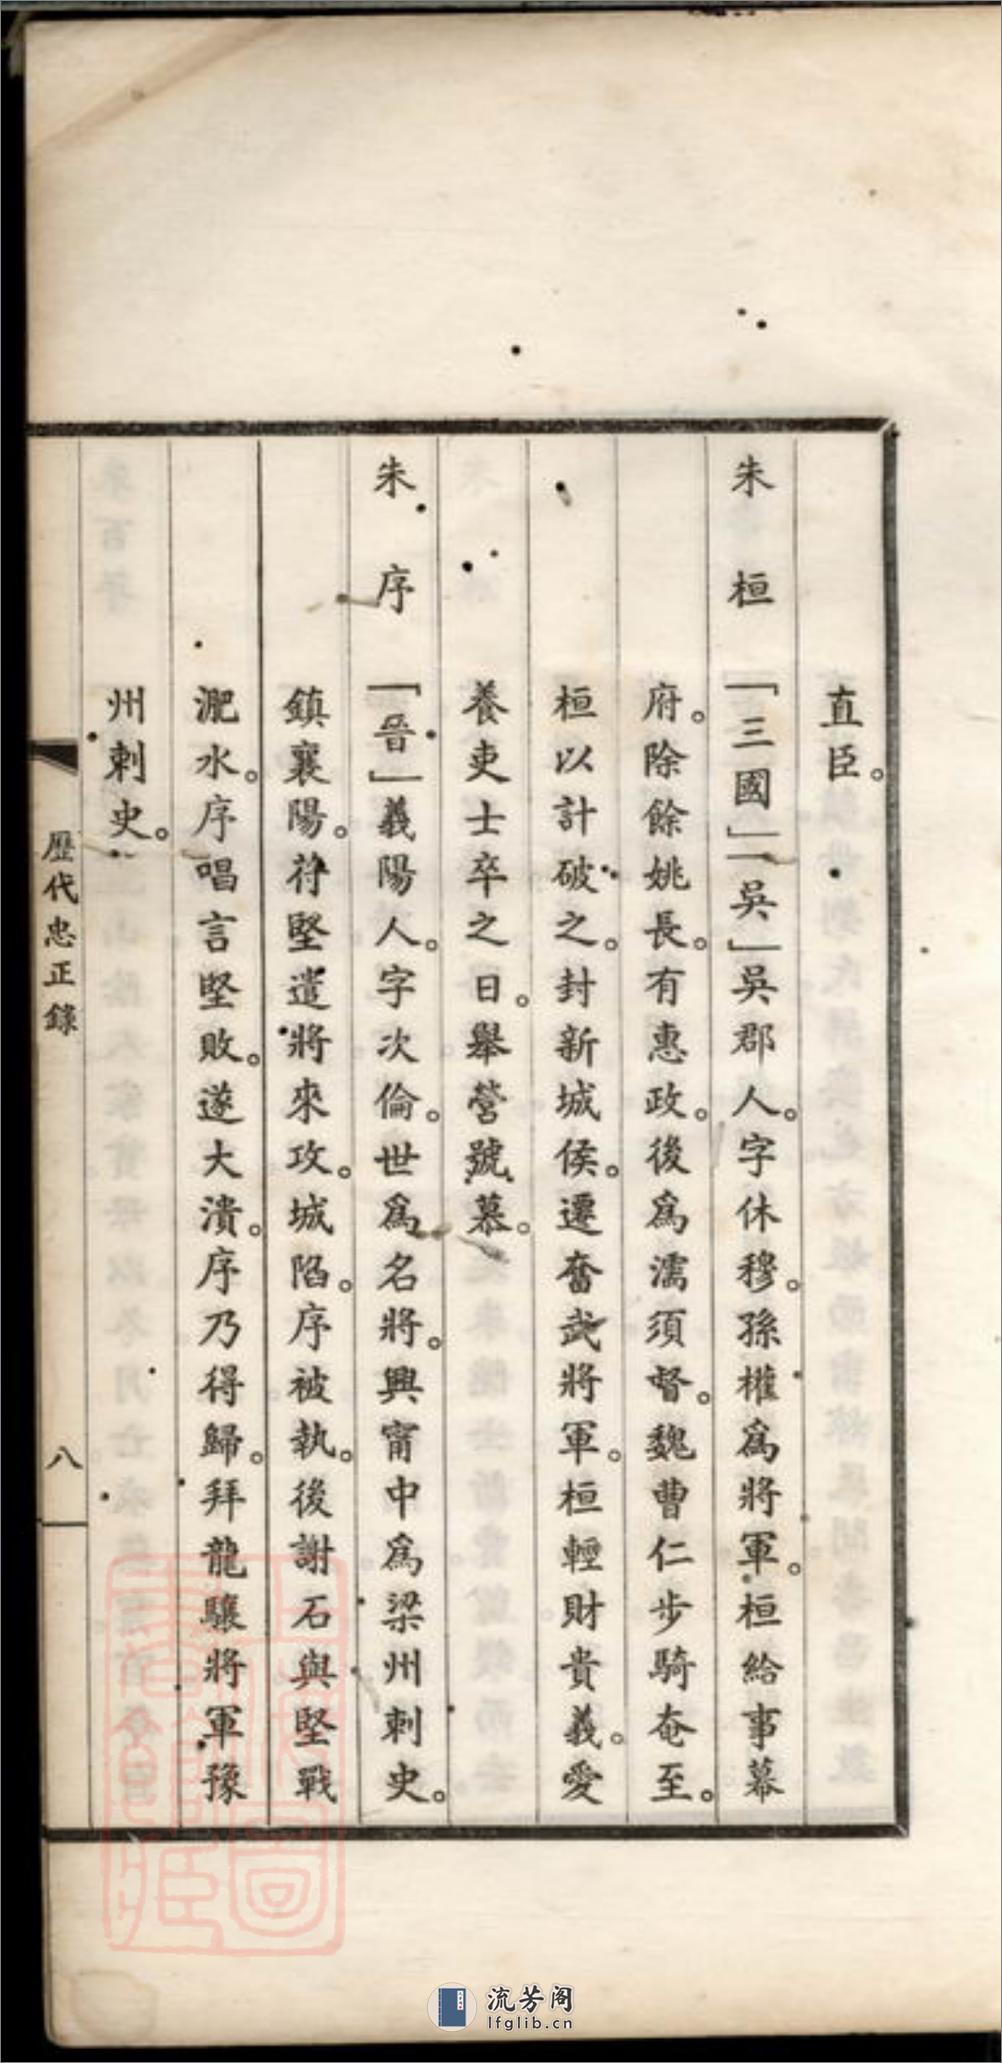 直臣。
朱桓「三國」「吳」吳郡人。字休穆。孫權爲將軍。桓給事幕
府。除餘姚長。有惠政。後爲濡須督。魏曹仁步騎奄至。
桓以計破之。封新城侯。遷奮武將軍。桓輕財貴義。愛
養吏士卒之日。舉營號慕。
朱序「晉」義陽人。字次倫。世爲名將。興甯中爲梁州刺史。
鎮襄陽。苻堅遣將來攻。城陷。序被執。後謝石與堅戰
淝水。序唱言堅敗。遂大潰。序乃得歸。拜龍驤將軍豫
州刺史。
歷代忠正錄
八
流芳阁
lfglib.cn